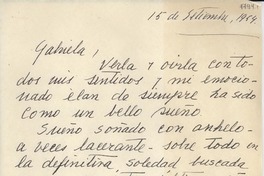 15 de Setiembre, 1954
Gabriela,
Verla y oirla con to-
dos mis sentidos y mi emocio-
nado elan de siempre ha sido
como un bello sueño.
Sueño soñado con anhelo
a veces lacerante - sobre todo en
la definitiva, soledad buscada